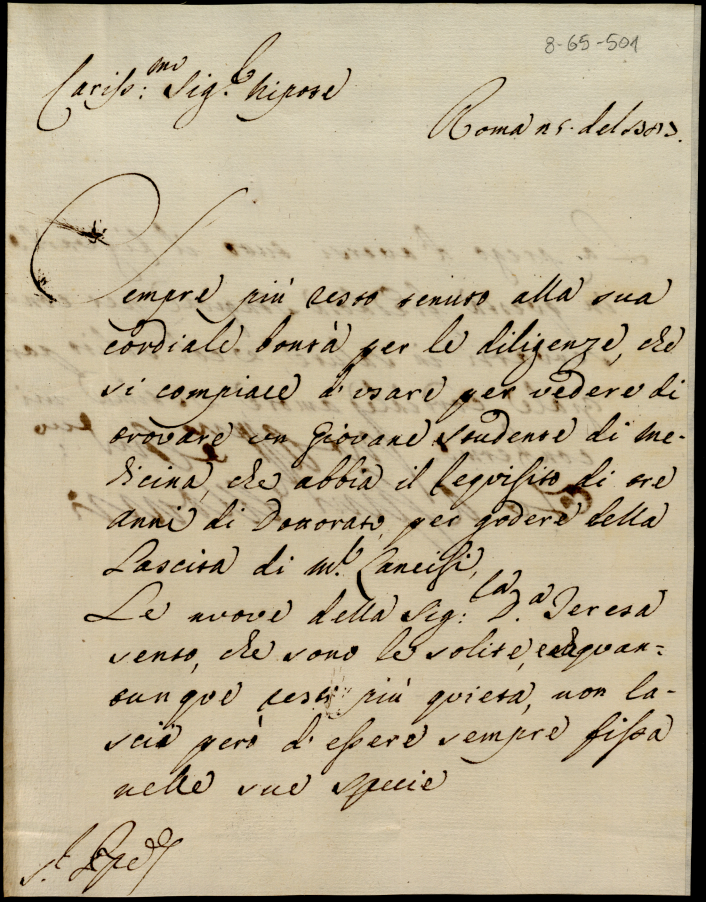 8-65-501
Cariss:mo Sig.e Nipote
Roma 25. del
Sempre più resto tenuto alla sua
cordiale bontà per le diligenze, che
si compiace d'usare per vedere di
trovare un Giovane Studente di me-
dicina, che abbia il requisito di tre
anni di Dottorato, per godere della
Lascita di M.r Lancisi,
Le nuove della Sig:ra D.a Teresa
sento, che sono le solite, e quan=
tunque resti più quieta, non la-
scia però di essere sempre fissa
nelle sue specie